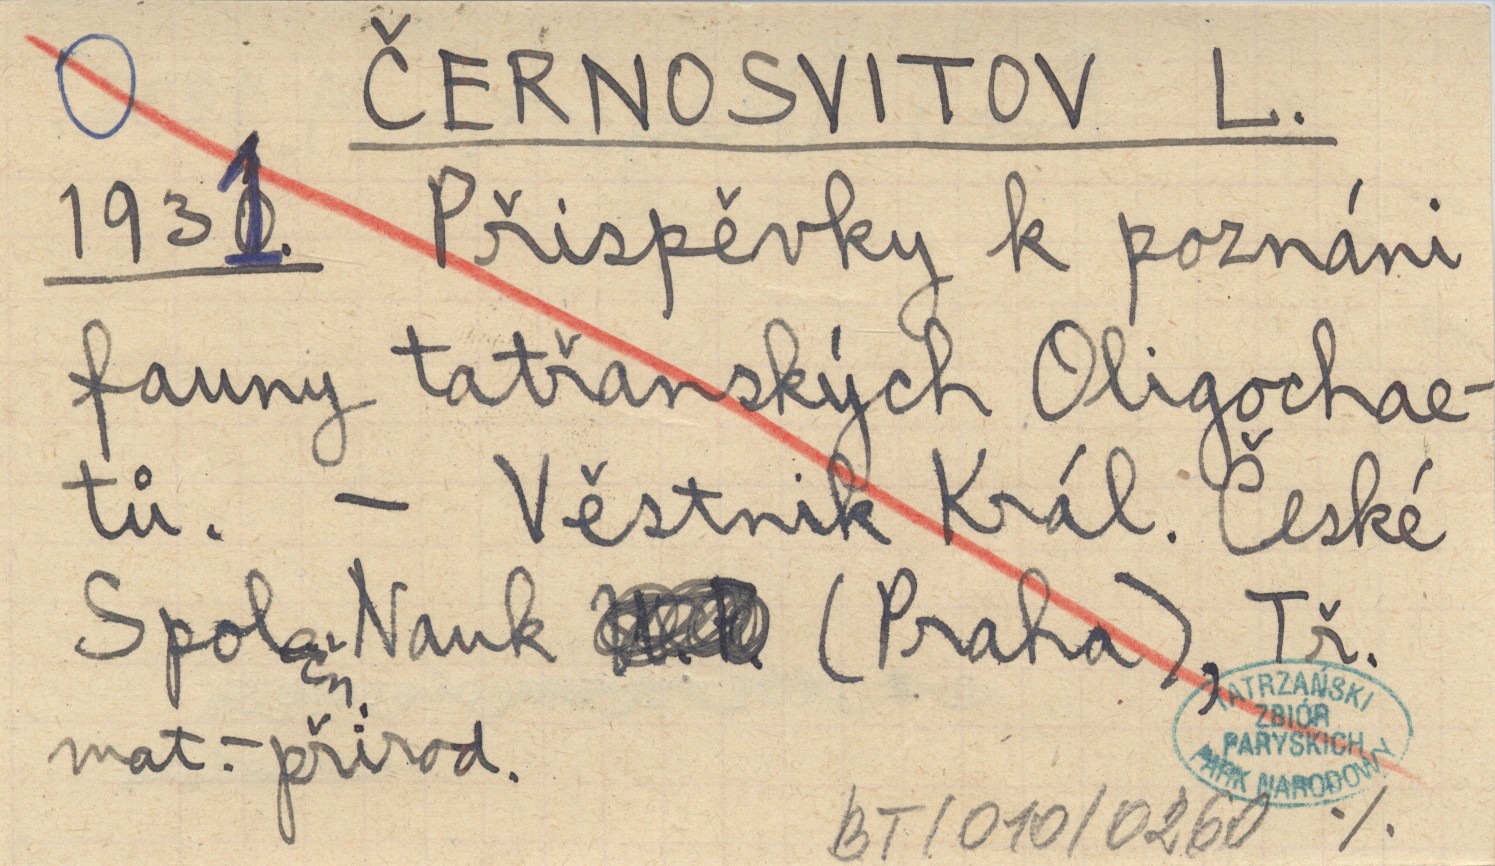 ČERNOSVITOV L.
1931. Přispěvky k poznáni
fauny tatřanských Oligochae-
tů. – Věstnik Král. České
Spol. Nauk (Praha), Tř.
mat.-přirod.
TATRZAŃSKI
ZBIÓR
PARYSKICH
PARK NARODOWY
BT/010/0260 ./.